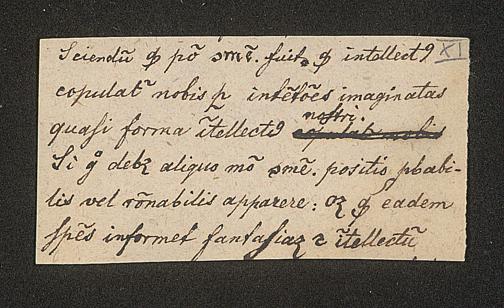 Sciendũ ꝙ põ ɔmẽ. fuit, ꝙ intellectꝰ XI
copulat~ nobis ꝑ intẽtões imaginatas
quasi forma ĩtellectꝰ nostri
Si gͦ debꝫ aliquo mõ ɔmẽ. positio ꝓbabi-
lis vel rõnabilis apparere: oꝫ ꝙ eadem
spẽs informet fantasiaꝫ ⁊ ĩtellectũ